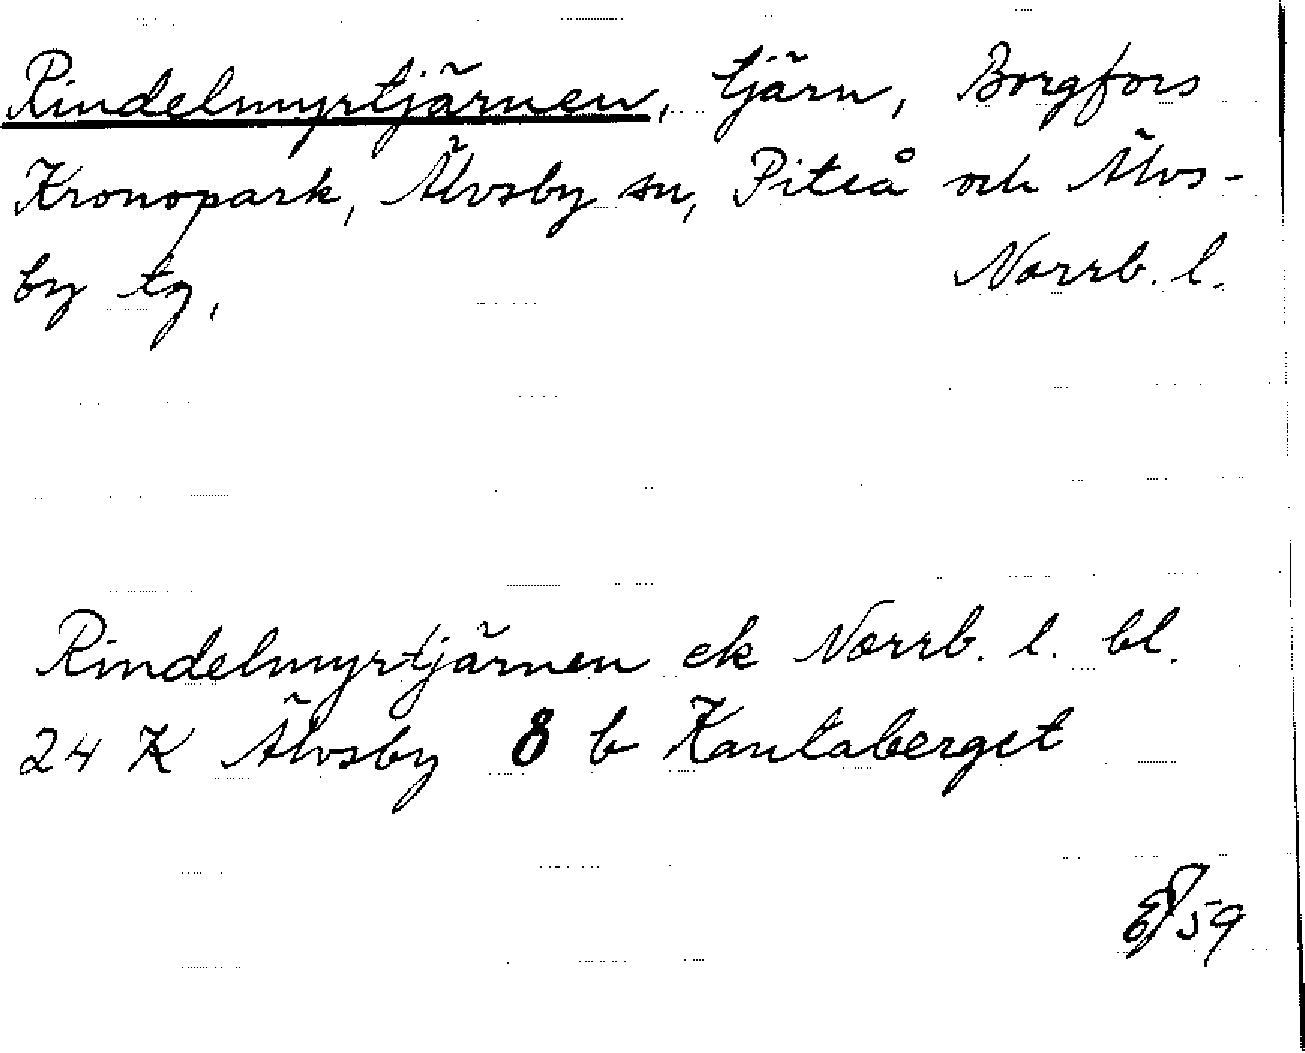 Rindelmyrtjärnen, tjärn, Borgfors
Kronopark, Älvsby sn, Piteå och Älvs-
by tg, Norrb. l.
Rindelmyrtjärnen ek Norrb. l. bl.
24 K Älvsby 8 b Kantaberget
59